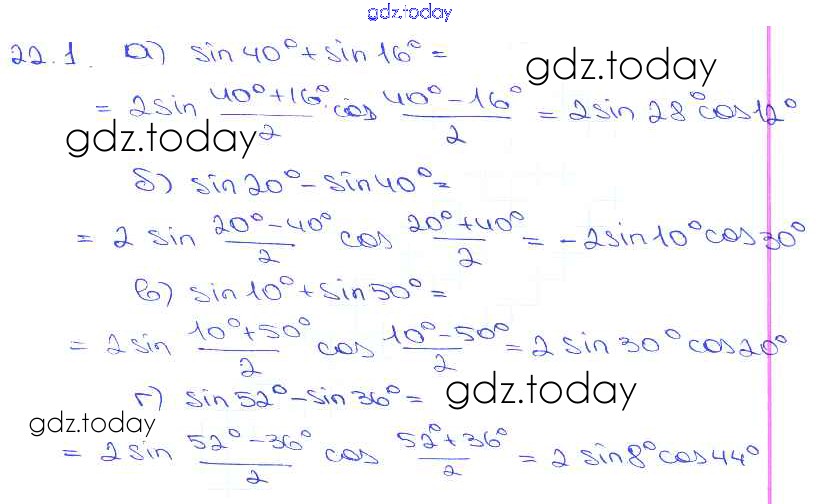 gdz.today
22.1. а) sin 40° + sin 16° =
gdz.today
= 2 sin (40° + 16°)/2 · cos (40° - 16°)/2 = 2 sin 28° cos 12°
gdz.today
б) sin 20° - sin 40° =
= 2 sin (20° - 40°)/2 cos (20° + 40°)/2 = -2 sin 10° cos 30°
в) sin 10° + sin 50° =
= 2 sin (10° + 50°)/2 cos (10° - 50°)/2 = 2 sin 30° cos 20°
г) sin 52° - sin 36° =
gdz.today
gdz.today
= 2 sin (52° - 36°)/2 cos (52° + 36°)/2 = 2 sin 8° cos 44°